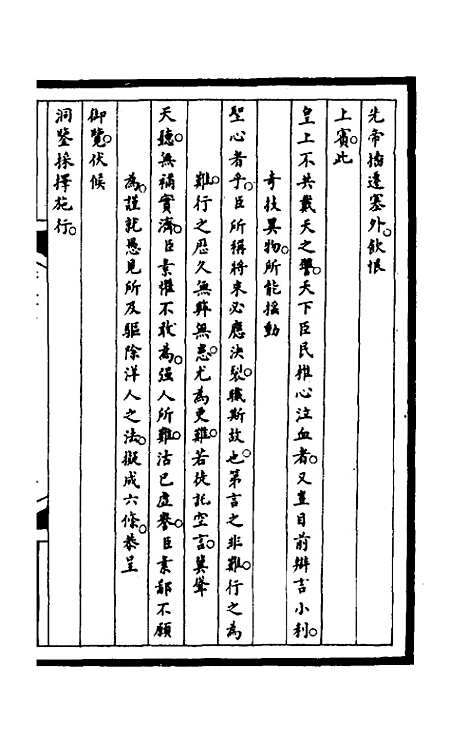 先帝播遷塞外。飲恨
上賓。此
皇上不共戴天之讐。天下臣民推心泣血者。又豈目前辯言小利。
奇技異物。所能搖動
聖心者乎。臣所稱將來必應決裂。職斯故也。第言之非難。行之為
難。行之歷久無弊無患。尤為更難。若徒託空言。冀聳
天聽。無補實濟。臣素懼不敢為。强人所難。沽已虛譽。臣素鄙不願
為。謹就愚見所及驅除洋人之法。擬成六條。恭呈
御覽。伏候
洞鑒採擇施行。